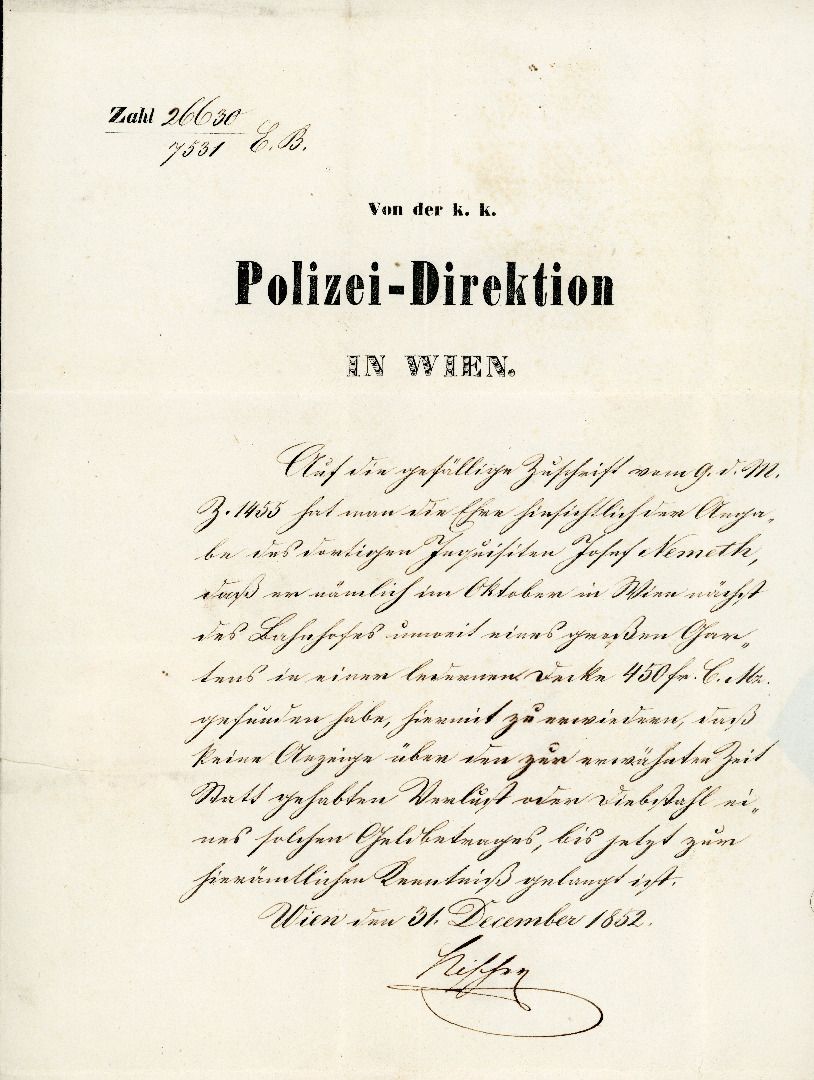 Zahl 26630
7531 E. B.
Von der k. k.
Polizei-Direktion
IN WIEN.
Auf die gefällige Zuschrift vom 9. d. M.
Z. 1455 hat man die Ehre hinsichtlich der Anga„
be des dortigen Inquisiten Josef Nemeth,
daß er nämlich im Oktober in Wien nächst
des Bahnhofes unweit eines großen Gar„
tens in einer ledernen Decke 450 fr. C. Mz.
gefunden habe, hiermit zu erwiedern, daß
keine Anzeige über den zur erwähnten Zeit
Statt gehabten Verlust oder Diebstahl ei„
nes solchen Geldbetrages, bis jetzt zur
hierämtlichen Kenntniß gelangt ist.
Wien den 31. December 1852.